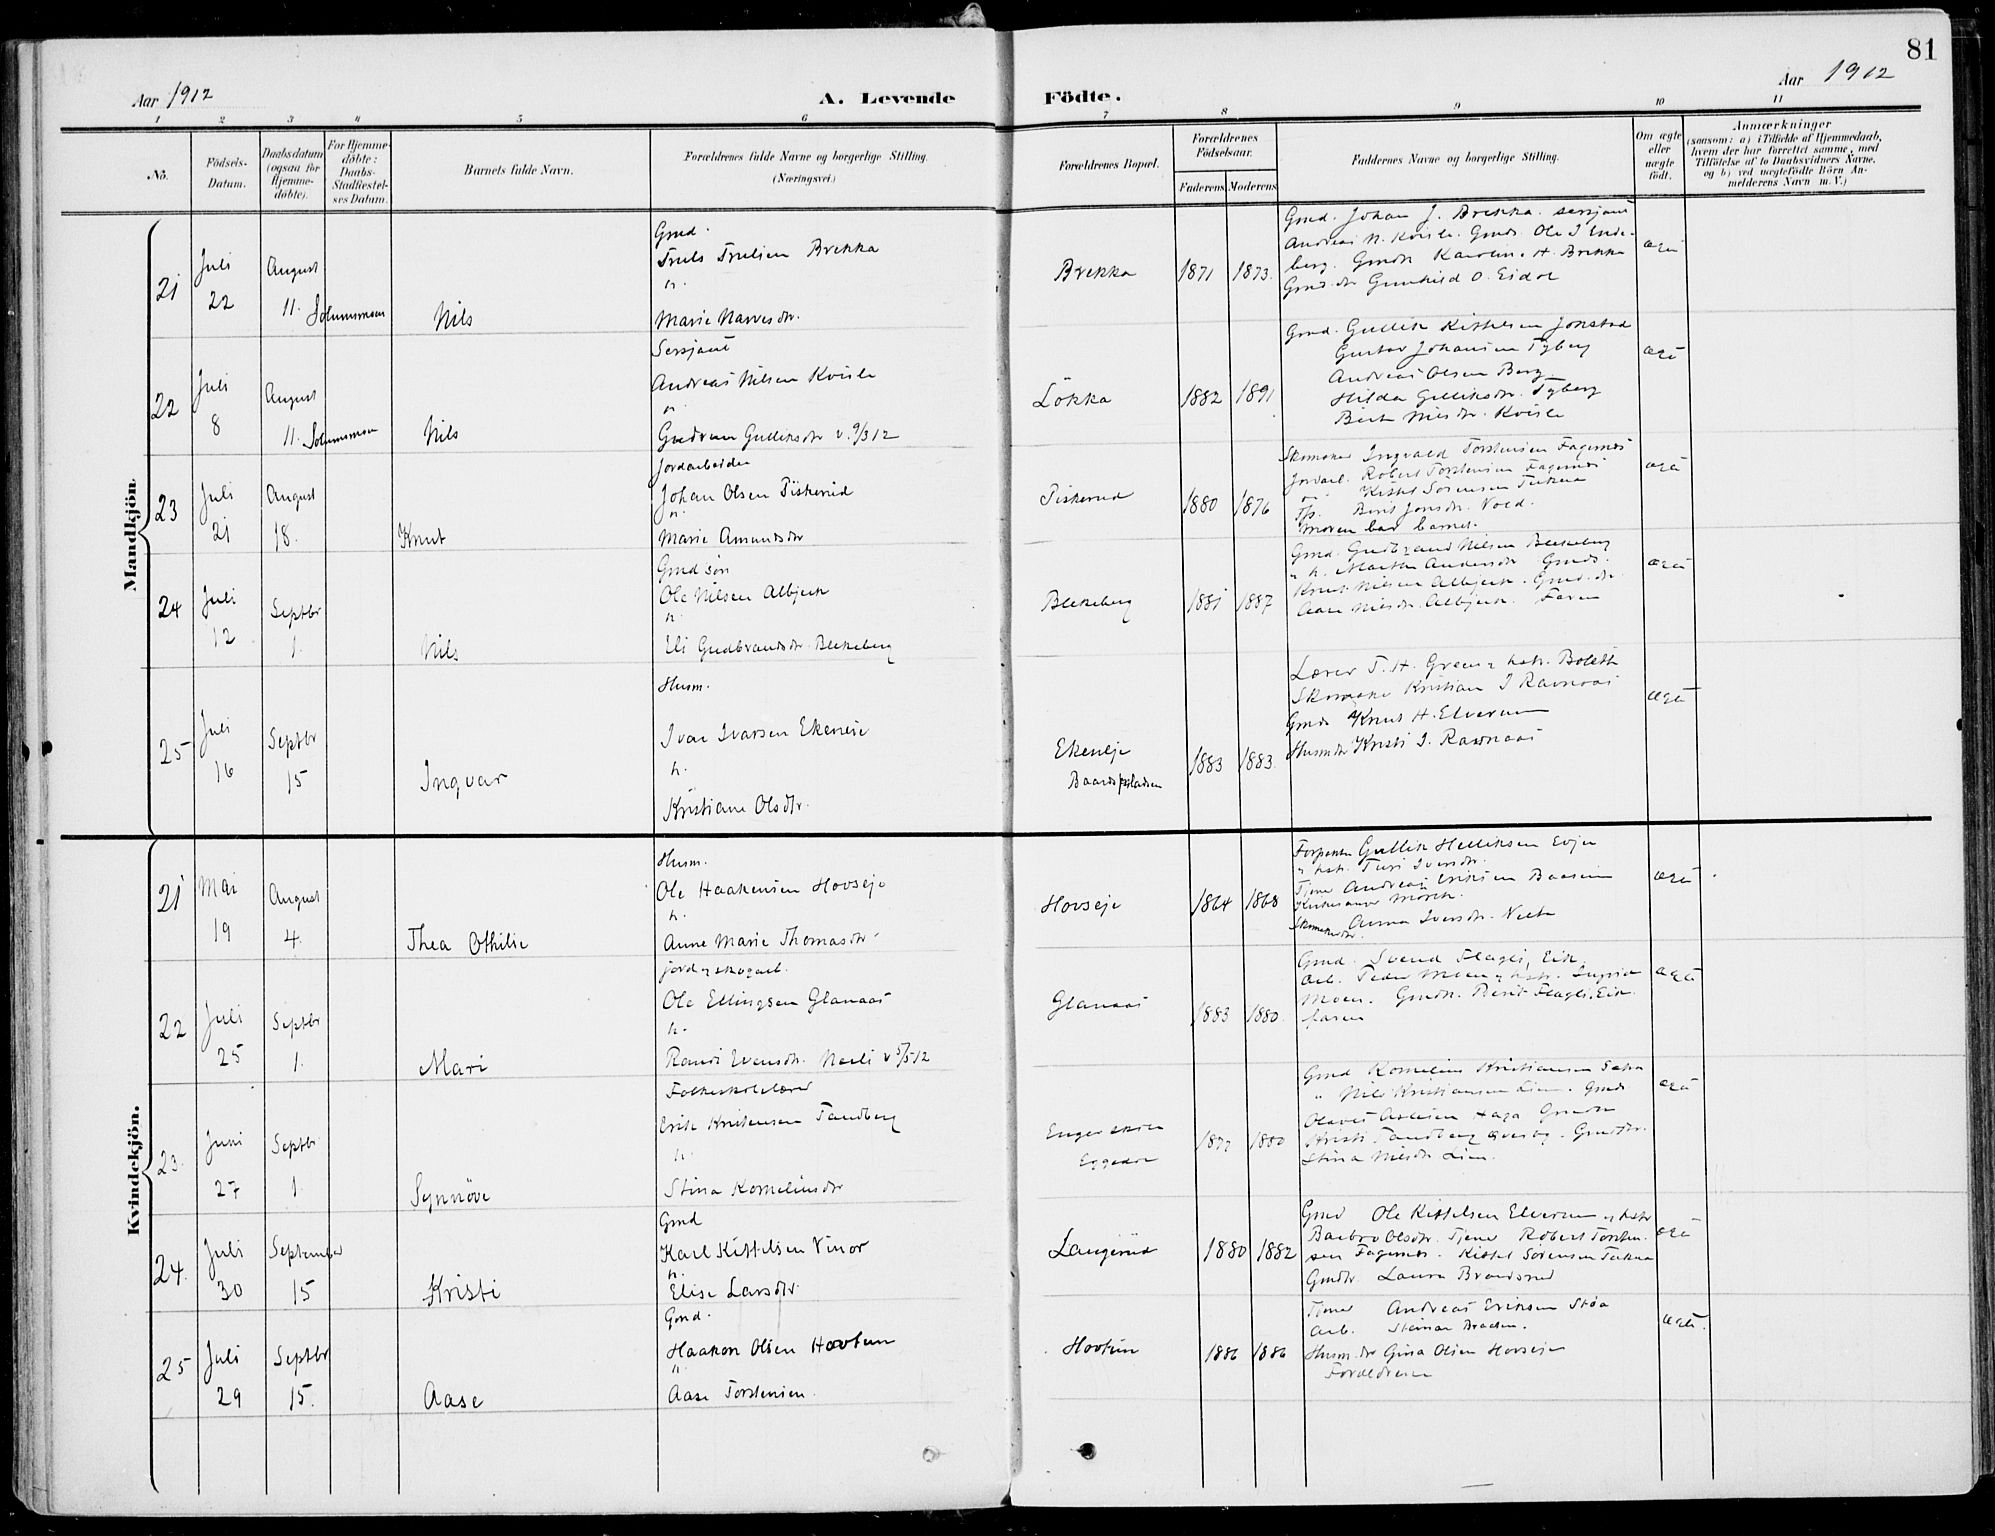 81
Aar 1912
A. Levende Födte.
Aar 1912
1 2 3 4 5 6 7 8 9 10 11
No.
Födsels-Datum.
Daabsdatum (ogsaa for Hjemme-döbte).
For Hjemme-döbte: Daabs-Stadfæstel-ses Datum.
Barnets fulde Navn.
Forældrenes fulde Navne og borgerlige Stilling. (Næringsvei.)
Forældrenes Bopæl.
Forældrenes Födselsaar.
Faderens Moderens
Faddernes Navne og borgerlige Stilling.
Om ægte eller uægte födt.
Anmærkninger
(saasom: a) i Tilfælde af Hjemmedaab, hvem der har forrettet samme, med Tilföielse af to Daabsvidners Navne, og b) ved uægtefödte Börn An-melderens Navn m. V.)
Mandkjön
21
Juli 22
August 11.
Nils
Gmd.
Truls Trulsen Brekka
h.
Marie Narvesdtr.
Brekka
1871 1873.
Gmd. Johan J. Brekka. sersjant
Andreas N. Kvisle. Gmds. Ole I Ende-
berg. Gmdk Karolin. H. Brekka
Gmd. dtr Gunhild O. Eidal
ægte
22
Juli 8
August 11.
Nils
Sersjant
Andreas Nilsen Kvisle
h.
Gudrun Gulliksdtr v. 9/3 12
Lökka
1882 1891
Gmd. Gullik Kittelsen Jonstad
Gustav Johansen Tyberg
Andreas Olsen Berg
Hilda Gulliksdtr. Tyberg
Berit Nilsdtr. Kvisle
ægte
23
Juli 21
August 18.
Knut
Jordarbeider
Johan Olsen Piskerud
h.
Marie Amundsdtr
Piskerud
1880 1876
Skomaker Ingvald Torstensen Fagernes
Jordarb. Robert Torstensen Fagernes
Kittel Sörensen
Berit Jonsdtr. Vold.
moren bar barnet.
ægte
24
Juli 12
Septbr 1.
Nils
Gmd sön
Ole Nilsen Albjerk
h.
Eli Gudbrandsdtr Blekeberg
Blekeberg
1881 1887
Gmd. Gudbrand Nilsen Blekeberg
" h. Marthe Andersdtr Gmds.
Knut Nilsen Albjerk. Gmd. dtr.
Aase Nilsdtr. Albjerk. Faren
ægte
25
Juli 16
Septbr 15
Ingvar
Husm.
Ivar Ivarsen Ekeneie
h.
Kristiane Olsdtr.
Ekeneje
1883 1883.
Lærer T. H. Græn og hstr. Boleth
Skomaker Kristian I Ravnaas
Gmds Knut H. Elverum
Husmdtr Kristi I. Ravnaas
ægte
Kvindekjön.
21
Mai 19
August 4.
Thea Othilie
Husm.
Ole Haakensen Hovseje
h.
Anne Marie Thomasdtr
Hovseje
1864 1868
Gullik Helliksen Evju
og hstr. Turi Iversdtr.
Tjener Andreas Eriksen Baasum
Kirkesanger Mörch
Skomakerdtr. Anna Iversdtr.
ægte
22
Juli 25
Septbr 1.
Mari
jord og skogarb.
Ole Ellingsen Glanaas
h.
Randi Evensdtr. v 5/5 12
Glanaas
1883 1880.
Gmd. Svend Flagli, Eik
Arb. Peder Moen og hstr. Ingrid
Moen. Gmdk. Berit Flagli, Eik.
faren
ægte
23.
Juni 27
Septbr 1.
Synnöve
Folkeskolelærer
Erik Kristensen Tandberg
h.
Stina Korneliusdtr
Eggedal
1877 1880
Gmd Kornelius Kristiansen
" Nils Kristiansen Lien. Gmds
Haga Gmdk
Kristi Tandberg Gmdtr.
Stina Nilsdtr Lien.
ægte
24.
Juli 30
September 15
Kristi
Gmd
Karl Kittelsen Vinor
h.
Elise Larsdtr
Langerud
1880 1882
Gmd Ole Kittelsen Elverum og hstr
Barbro Olsdtr. Tjener Robert Torsten-
sen Fagernes. Kittel Sörensen
Gmdtr. Laura Brandsrud
ægte
25
Juli 29
Septbr 15.
Aase
Gmd.
Haakon Olsen Hovtun
h.
Aase Torstensen.
Hovtun
1886 1886
Tjener Andreas Eriksen Stöa
Arb. Steinar Braaten.
Husm. dtr Gina Olsen Hovseje
Forældrene
ægte.